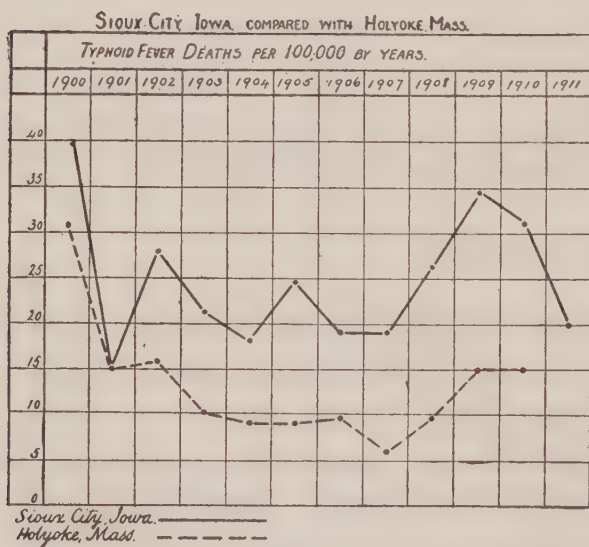 SIOUX CITY, IOWA, COMPARED WITH HOLYOKE, MASS.
TYPHOID FEVER DEATHS PER 100,000 BY YEARS.
1900 1901 1902 1903 1904 1905 1906 1907 1908 1909 1910 1911
40
35
30
25
20
15
10
5
0
Sioux City, Iowa.
Holyoke, Mass.